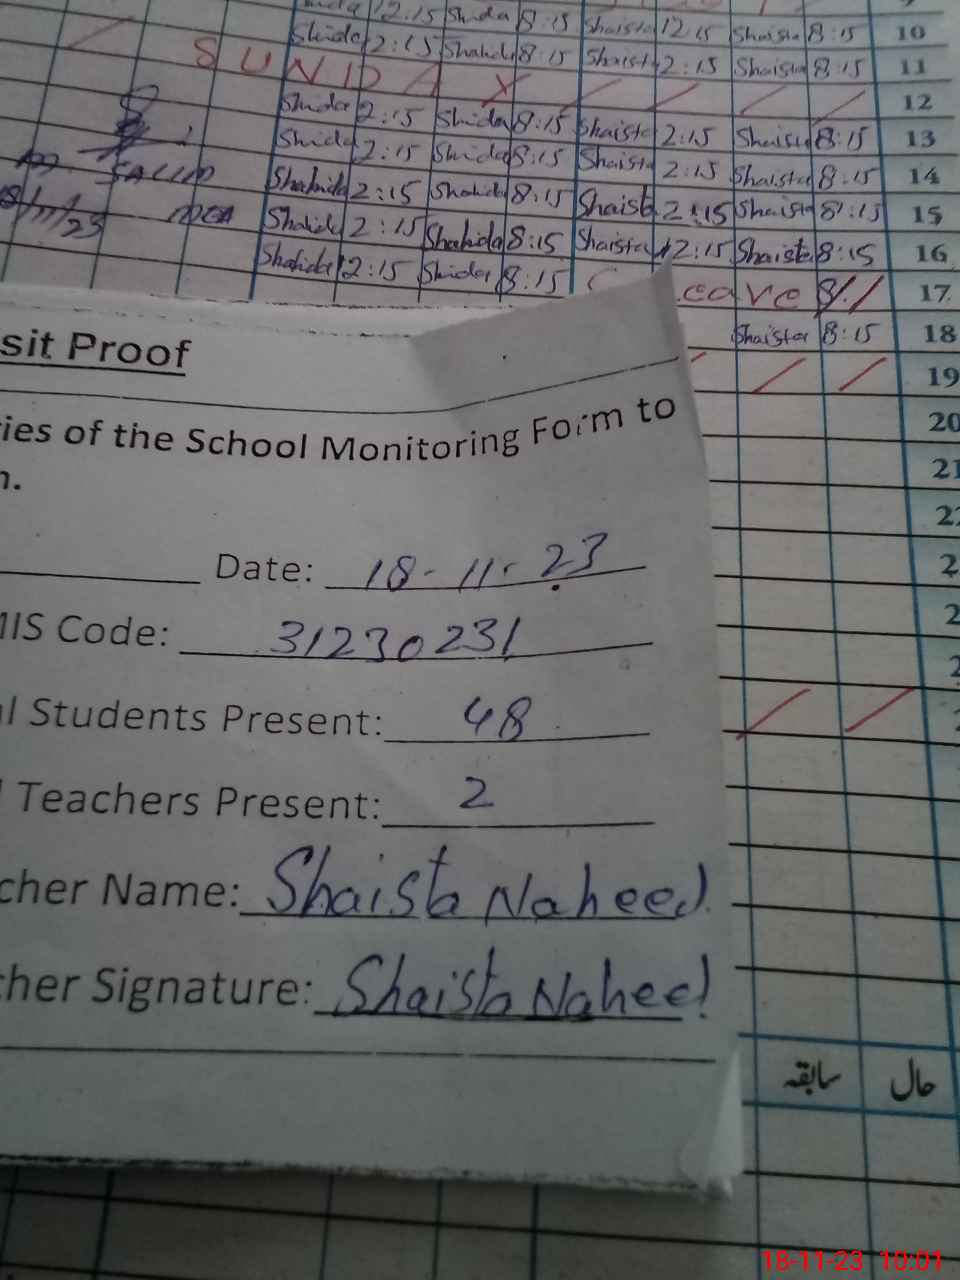 12.15 Shida 8:15 Shaista 12:15 Shaista 8:15 10
Shida 2:15 Shahida 8:15 Shaista 2:15 Shaista 8:15 11
SUNDAY 12
Shida 2:15 Shida 8:15 Shaista 2:15 Shaista 8:15 13
Shida 2:15 Shida 8:15 Shaista 2:15 Shaista 8:15 14
Shahida 2:15 Shahida 8:15 Shaista 2:15 Shaista 8:15 15
18/11/23
Shahida 2:15 Shahida 8:15 Shaista 12:15 Shaista 8:15 16
Shahida 12:15 Shida 8:15 Leave 17
Shaista 8:15 18
19
20
21
sit Proof
ies of the School Monitoring Form to
n.
Date: 18-11-23
MIS Code: 31230231
l Students Present: 48
Teachers Present: 2
cher Name: Shaista Naheed
cher Signature: Shaista Naheed
سابقہ حال
18-11-23 10:01